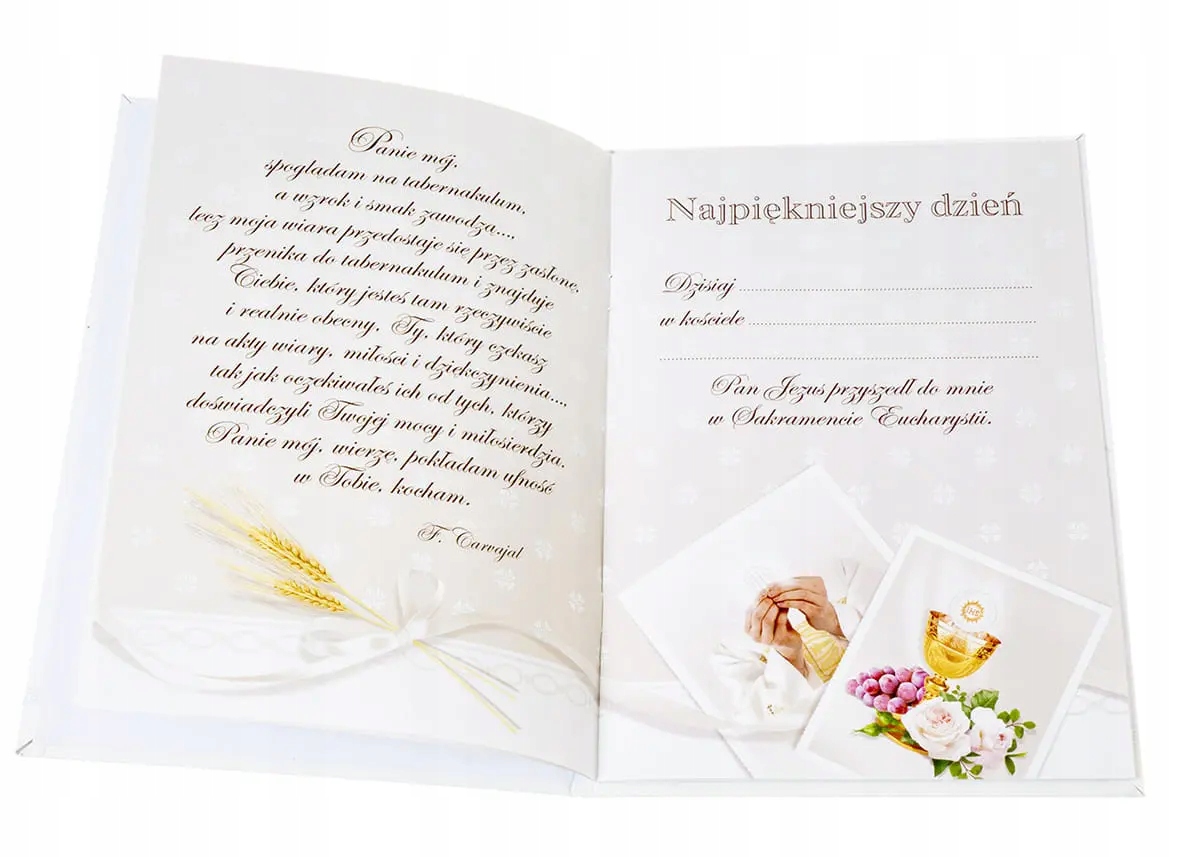 Panie mój,
spoglądam na tabernakulum,
a wzrok i smak zawodzą...,
lecz moja wiara przedostaje się przez zasłonę,
przenika do tabernakulum i znajduje
Ciebie, który jesteś tam rzeczywiście
i realnie obecny. Ty, który czekasz
na akty wiary, miłości i dziękczynienia...,
tak jak oczekiwałeś ich od tych, którzy
doświadczyli Twojej mocy i miłosierdzia.
Panie mój, wierzę, pokładam ufność
w Tobie, kocham.
F. Carvajal
Najpiękniejszy dzień
Dzisiaj
w kościele
Pan Jezus przyszedł do mnie
w Sakramencie Eucharystii.
IHS